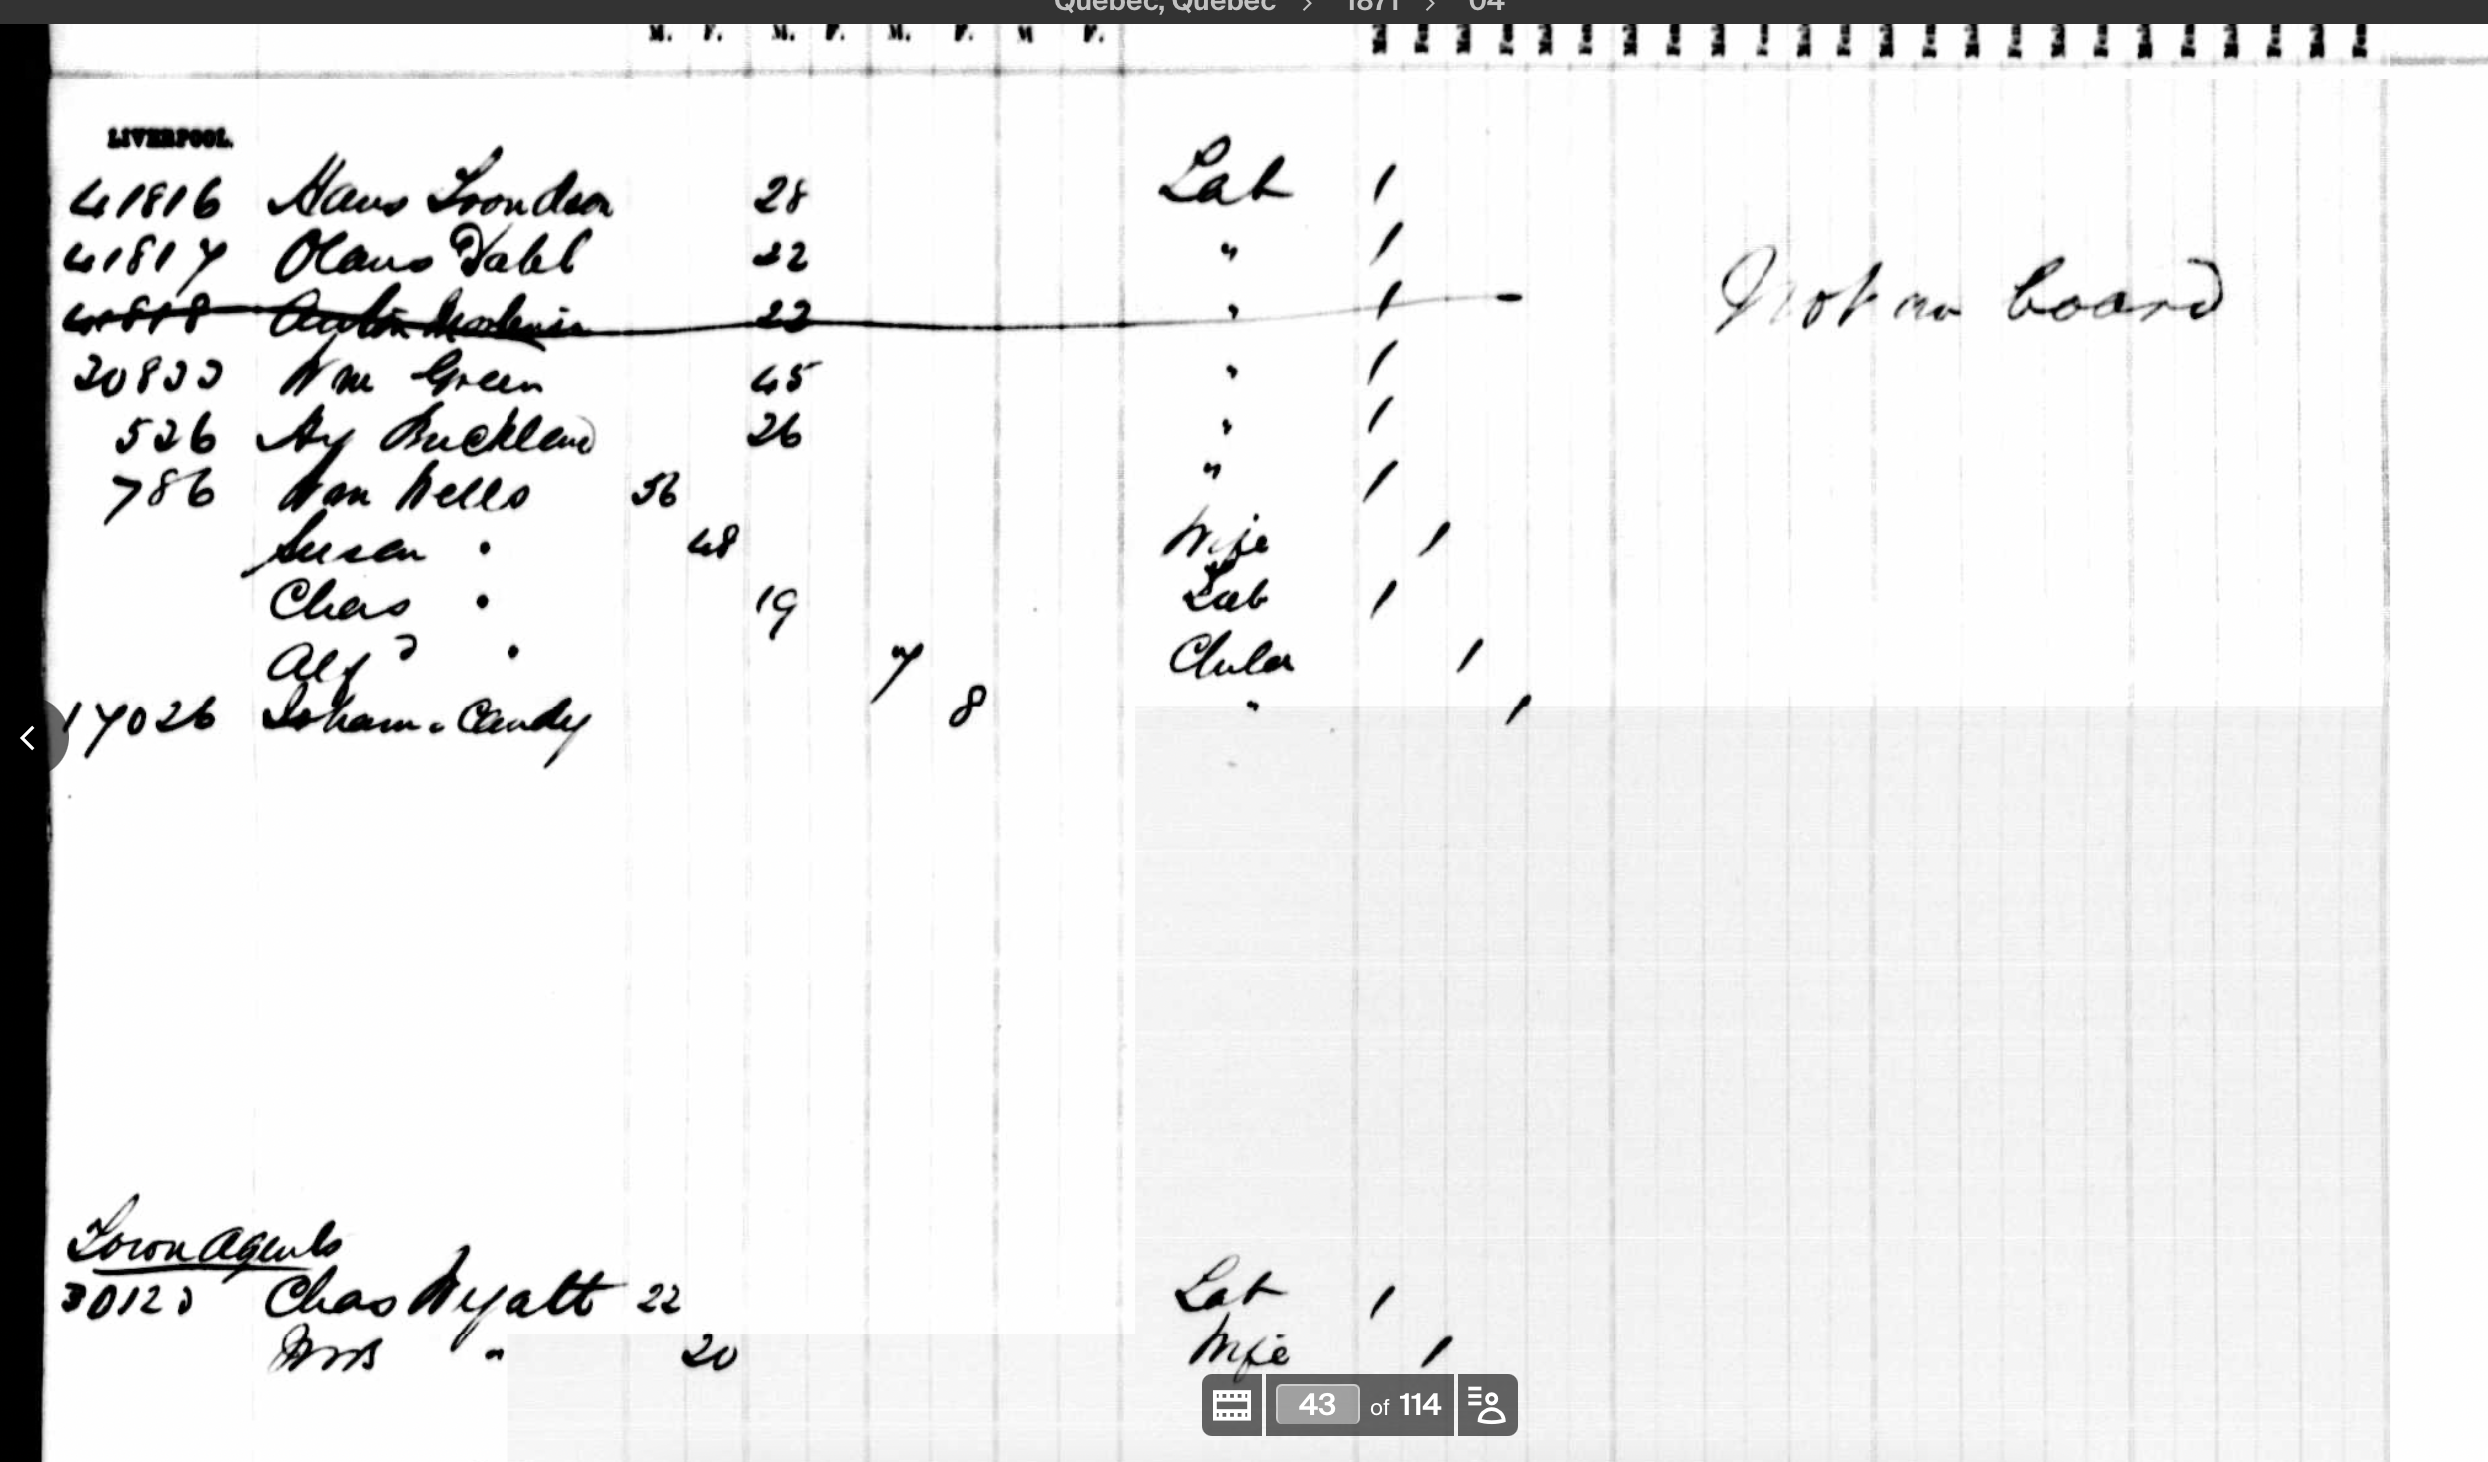 Quebec, Quebec > 1871 > 04
M. F. M. F. M. F. M F.
LIVERPOOL.
41816 Hans Trondsen 28 Lab 1
41817 Olaus Dahl 22 " 1
41818 Anton 22 " 1 Not on board
30833 Wm Green 45 " 1
526 Hy Buckland 26 " 1
786 Wm Wells 56 " 1
Susan " 48 Wife 1
Chas " 19 Lab 1
Alfd " 7 Childn 1
17026 Isham. Candy 8 " 1
Town Agents
30123 Chas Wyatt 22 Lab 1
Mrs " 20 Wife 1
43 of 114